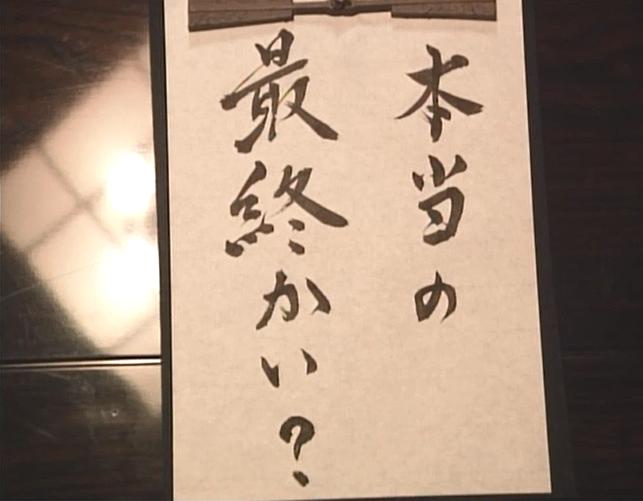 本当の
最終かい?